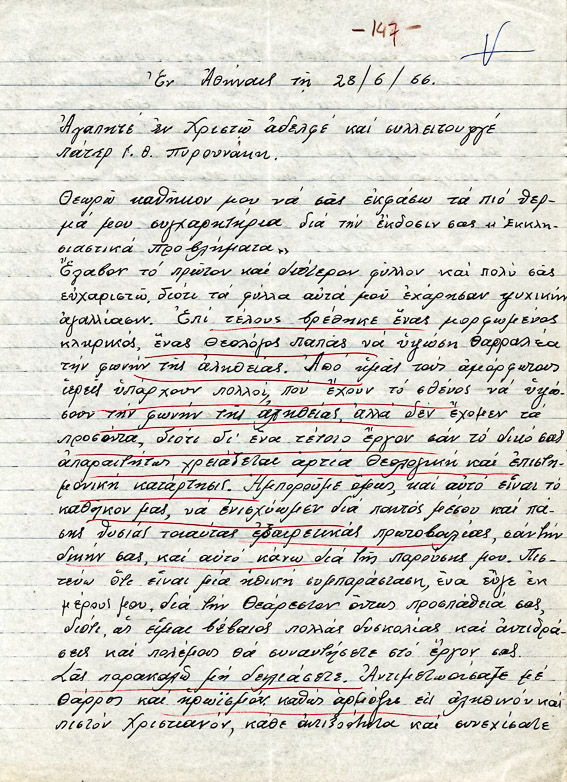 - 147 -
Ἐν Ἀθήναις τῇ 28/6/66.
Ἀγαπητέ ἐν Χριστῷ ἀδελφέ καί συλλειτουργέ
Πάτερ Γ. Θ. Πυρουνάκη.
Θεωρῶ καθῆκον μου νά σᾶς ἐκφάσω τά πιό θερ-
μά μου συγχαρητήρια διά τήν ἔκδοσιν σας "Ἐκκλη-
σιαστικά Προβλήματα"
Ἔλαβον τό πρῶτον καί δεύτερον φύλλον καί πολύ σᾶς
εὐχαριστῶ, διότι τά φύλλα αὐτά μοῦ ἐχάρησαν ψυχικήν
ἀγαλλίασιν. Ἐπί τέλους βρέθηκε ἕνας μορφωμένος
κληρικός, ἕνας Θεολόγος παπάς νά ὑψώση θαρραλέα
τήν φωνήν τῆς ἀληθείας. Ἀπό ἡμᾶς τούς ἀμορφώτους
ἱερεῖς ὑπάρχουν πολλοί, πού ἔχουν τό σθένος νά ὑψώ-
σουν τήν φωνήν τῆς ἀληθείας, ἀλλά δέν ἔχομεν τά
προσόντα, διότι δι' ἕνα τέτοιο ἔργον σάν τό δικό σας
ἀπαραιτήτως χρειάζεται ἀρτία Θεολογική καί ἐπιστη-
μονική κατάρτησις. Ἀμποροῦμε ὅμως, καί αὐτό εἶναι τό
καθῆκον μας, νά ἐνισχύωμεν διά παντός μέσου καί πά-
σης θυσίας τοιαύτας ἐξαιρετικάς πρωτοβουλίας, σάν τήν
δικήν σας, καί αὐτό κάνω διά τῆς παρούσης μου. Πισ-
τεύω ὅτι εἶναι μία ἠθική συμπαράστασι, ἕνα εὖγε ἐκ
μέρους μου, διά τήν Θεάρεστον ὄντως προσπάθειά σας,
διότι, ἄς εἶμαι βέβαιος πολλάς δυσκολίας καί ἀντιδρά-
σεις καί πολέμους θά συναντήσετε στό ἔργον σας.
Σᾶς παρακαλῶ μή δειλιάσετε. Ἀντιμετωπίσατε μέ
θάρρος καί ἡρωϊσμόν καθώς ἁρμόζει εἰς ἀληθινόν καί
πιστόν Χριστιανόν, κάθε ἀντιξοότητα καί συνεχίσατε